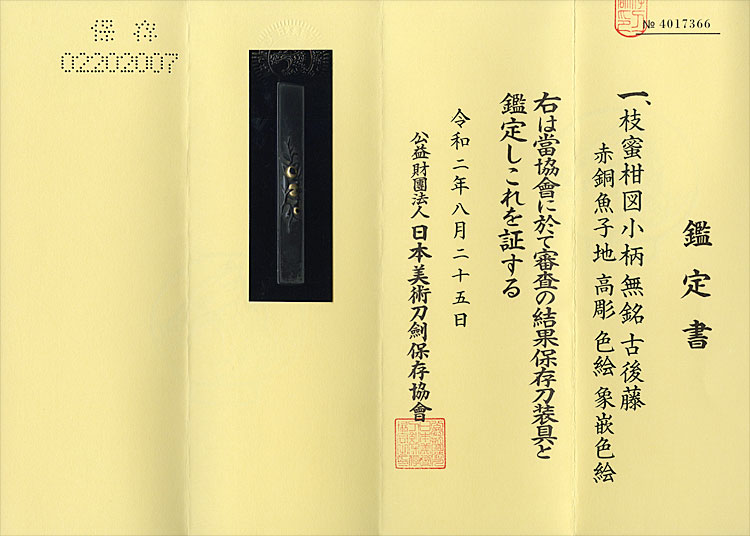 № 4017366
鑑定書
一、枝蜜柑図小柄 無銘 古後藤
赤銅魚子地 高彫 色絵 象嵌色絵
右は當協會に於て審査の結果保存刀装具と
鑑定しこれを証する
令和二年八月二十五日
公益財團法人 日本美術刀劍保存協會
保存
02202007